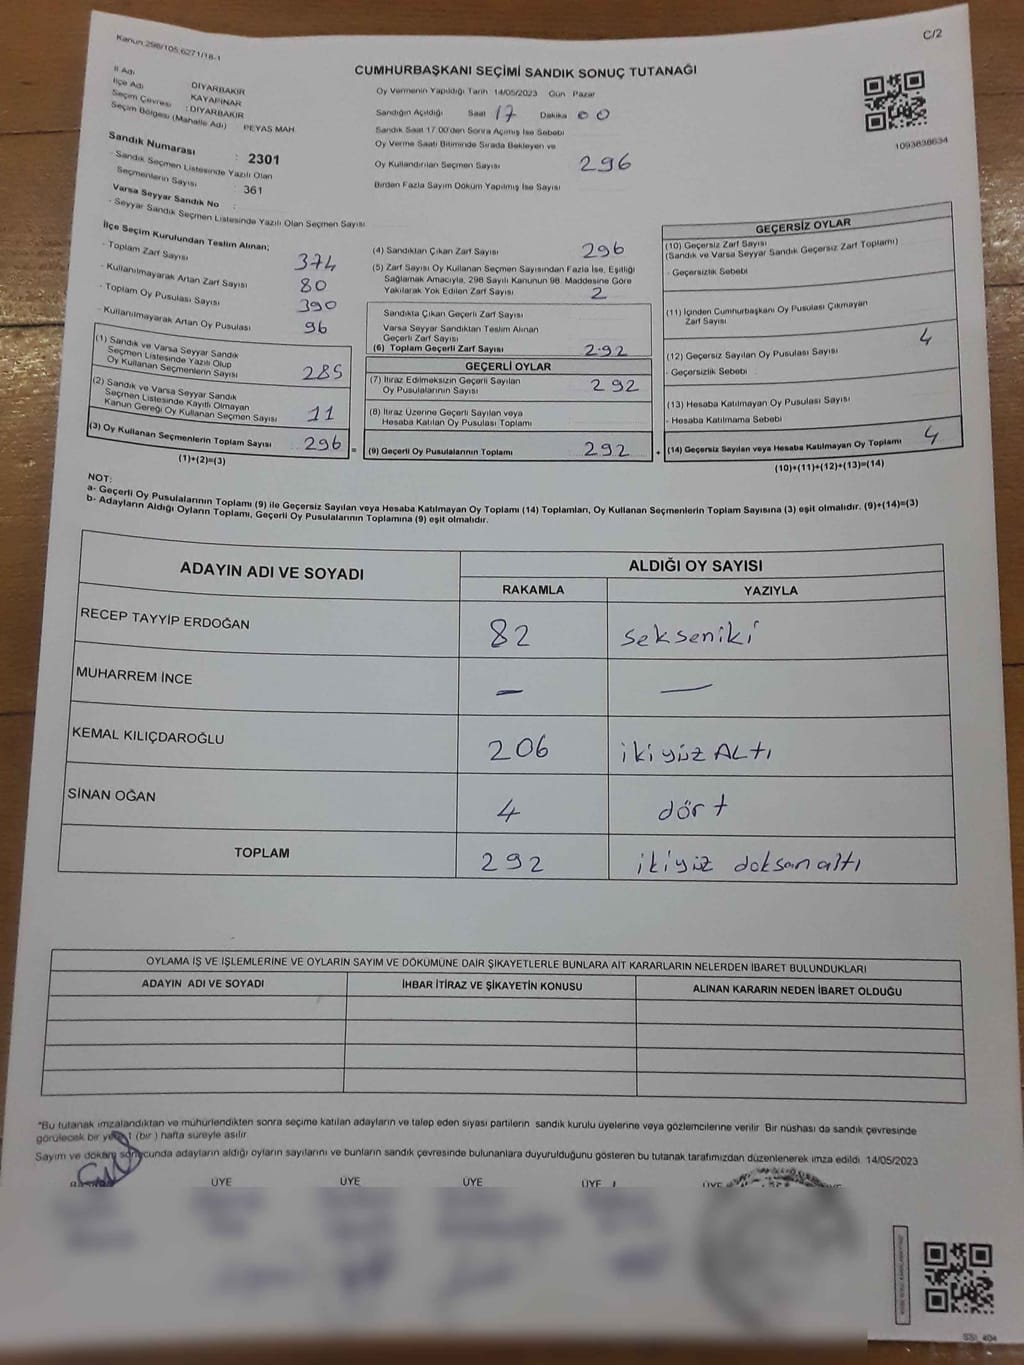 Kanun:298/105,6271/18-1
C/2
CUMHURBAŞKANI SEÇİMİ SANDIK SONUÇ TUTANAĞI
İl Adı : DİYARBAKIR
İlçe Adı : KAYAPINAR
Seçim Çevresi : DİYARBAKIR
Seçim Bölgesi (Mahalle Adı) : PEYAS MAH.
Sandık Numarası : 2301
- Sandık Seçmen Listesinde Yazılı Olan
Seçmenlerin Sayısı : 361
Varsa Seyyar Sandık No :
- Seyyar Sandık Seçmen Listesinde Yazılı Olan Seçmen Sayısı:
Oy Vermenin Yapıldığı Tarih: 14/05/2023 Gün : Pazar
Sandığın Açıldığı Saat 17 Dakika 00
Sandık Saat 17.00'den Sonra Açılmış İse Sebebi
Oy Verme Saati Bitiminde Sırada Bekleyen ve
Oy Kullandırılan Seçmen Sayısı 296
Birden Fazla Sayım Döküm Yapılmış İse Sayısı
1093638634
İlçe Seçim Kurulundan Teslim Alınan;
- Toplam Zarf Sayısı 374
- Kullanılmayarak Artan Zarf Sayısı 80
- Toplam Oy Pusulası Sayısı 390
- Kullanılmayarak Artan Oy Pusulası 96
(1) Sandık ve Varsa Seyyar Sandık
Seçmen Listesinde Yazılı Olup
Oy Kullanan Seçmenlerin Sayısı 285
(2) Sandık ve Varsa Seyyar Sandık
Seçmen Listesinde Kayıtlı Olmayan
Kanun Gereği Oy Kullanan Seçmen Sayısı 11
(3) Oy Kullanan Seçmenlerin Toplam Sayısı 296 =
(1)+(2)=(3)
(4) Sandıktan Çıkan Zarf Sayısı 296
(5) Zarf Sayısı Oy Kullanan Seçmen Sayısından Fazla İse, Eşitliği
Sağlamak Amacıyla, 298 Sayılı Kanunun 98. Maddesine Göre
Yakılarak Yok Edilen Zarf Sayısı 2
Sandıkta Çıkan Geçerli Zarf Sayısı
Varsa Seyyar Sandıktan Teslim Alınan
Geçerli Zarf Sayısı
(6) Toplam Geçerli Zarf Sayısı 292
GEÇERLİ OYLAR
(7) İtiraz Edilmeksizin Geçerli Sayılan
Oy Pusulalarının Sayısı 292
(8) İtiraz Üzerine Geçerli Sayılan veya
Hesaba Katılan Oy Pusulası Toplamı
(9) Geçerli Oy Pusulalarının Toplamı 292 +
GEÇERSİZ OYLAR
(10) Geçersiz Zarf Sayısı
(Sandık ve Varsa Seyyar Sandık Geçersiz Zarf Toplamı)
- Geçersizlik Sebebi
(11) İçinden Cumhurbaşkanı Oy Pusulası Çıkmayan
Zarf Sayısı
(12) Geçersiz Sayılan Oy Pusulası Sayısı 4
- Geçersizlik Sebebi :
(13) Hesaba Katılmayan Oy Pusulası Sayısı
- Hesaba Katılmama Sebebi
(14) Geçersiz Sayılan veya Hesaba Katılmayan Oy Toplamı 4
(10)+(11)+(12)+(13)=(14)
NOT:
a- Geçerli Oy Pusulalarının Toplamı (9) ile Geçersiz Sayılan veya Hesaba Katılmayan Oy Toplamı (14) Toplamları, Oy Kullanan Seçmenlerin Toplam Sayısına (3) eşit olmalıdır. (9)+(14)=(3)
b- Adayların Aldığı Oyların Toplamı, Geçerli Oy Pusulalarının Toplamına (9) eşit olmalıdır.
ADAYIN ADI VE SOYADI
ALDIĞI OY SAYISI
RAKAMLA YAZIYLA
RECEP TAYYİP ERDOĞAN 82 sekseniki
MUHARREM İNCE — —
KEMAL KILIÇDAROĞLU 206 iki yüz ALtı
SİNAN OĞAN 4 dört
TOPLAM 292 ikiyüz doksan altı
OYLAMA İŞ VE İŞLEMLERİNE VE OYLARIN SAYIM VE DÖKÜMÜNE DAİR ŞİKAYETLERLE BUNLARA AİT KARARLARIN NELERDEN İBARET BULUNDUKLARI
ADAYIN ADI VE SOYADI İHBAR İTİRAZ VE ŞİKAYETİN KONUSU ALINAN KARARIN NEDEN İBARET OLDUĞU
"Bu tutanak imzalandıktan ve mühürlendikten sonra seçime katılan adayların ve talep eden siyasi partilerin sandık kurulu üyelerine veya gözlemcilerine verilir. Bir nüshası da sandık çevresinde
görülecek bir yere 1 (bir ) hafta süreyle asılır.
Sayım ve döküm sonucunda adayların aldığı oyların sayılarını ve bunların sandık çevresinde bulunanlara duyurulduğunu gösteren bu tutanak tarafımızdan düzenlenerek imza edildi. 14/05/2023
ÜYE ÜYE ÜYE ÜYE ÜYE